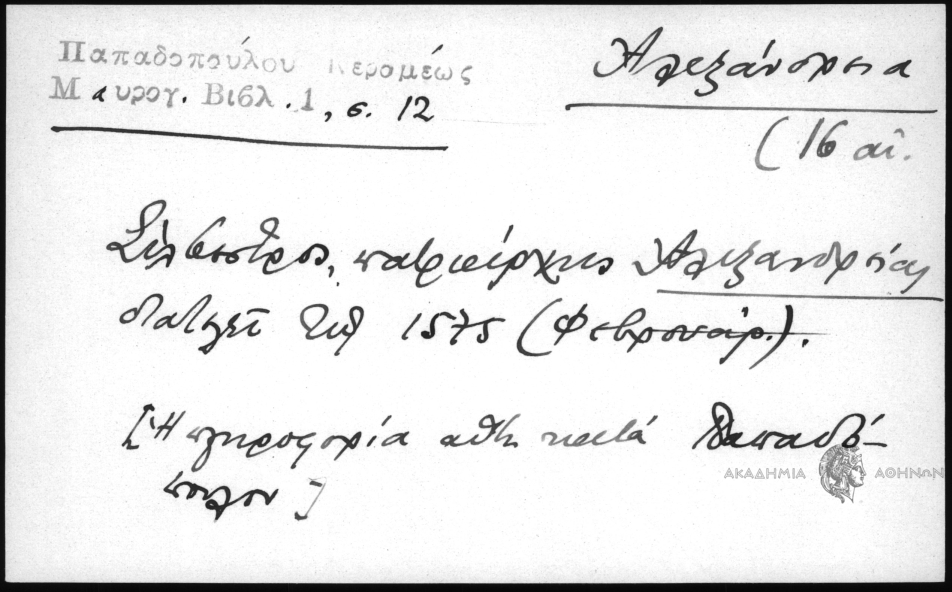 Παπαδοπούλου Κεραμέως
Μαυρογ. Βιβλ. 1, σ. 12
Ἀλεξάνδρεια
(16 αἰ.
Σίλβεστρος, πατριάρχης Ἀλεξανδρείας
διατελεῖ τῷ 1575 (Φεβρουάρ.).
[Ἡ πληροφορία αὕτη κατά Παπαδό-
πουλον]
ΑΚΑΔΗΜΙΑ ΑΘΗΝΩΝ